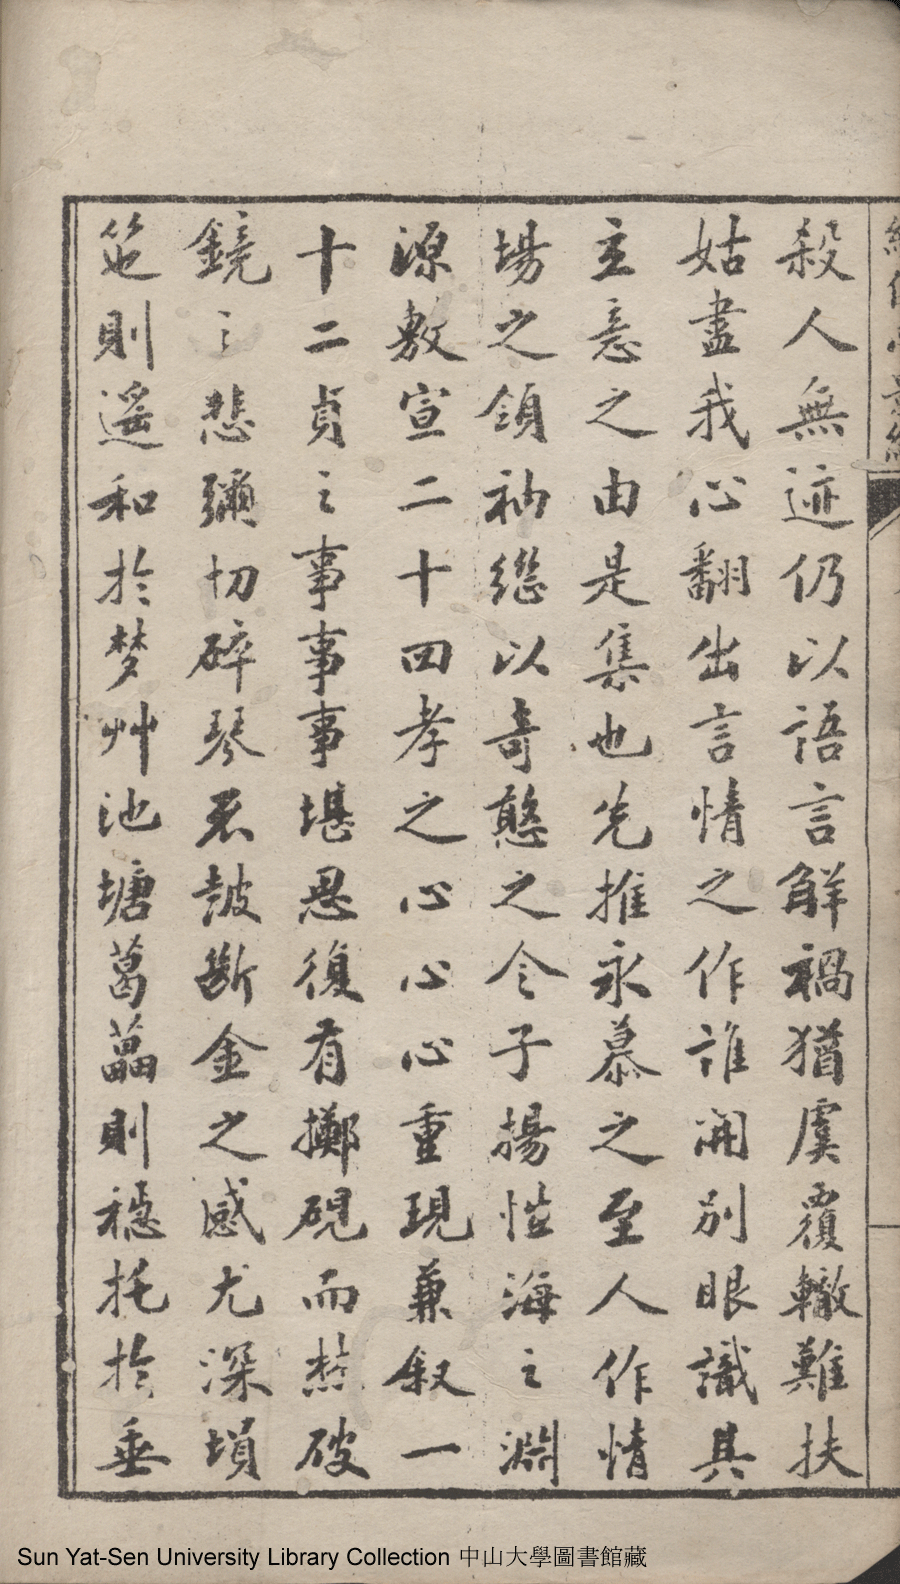 殺人無迹仍以語言觧禍猶虞覆轍難扶
姑盡我心翻出言情之作誰開别眼識其
主意之由是集也先推永慕之至人作情
場之領袖繼以奇憨之令子揚性海之淵
源敷宣二十四孝之心心心重現兼叙一
十二貞之事事事堪思復有擲硯而愁破
鏡之悲彌切碎琴忍皷斷金之感尤深塤
箎則遥和於梦艸池塘葛藟則穩托於垂
Sun Yat-Sen University Library Collection 中山大學圖書館藏